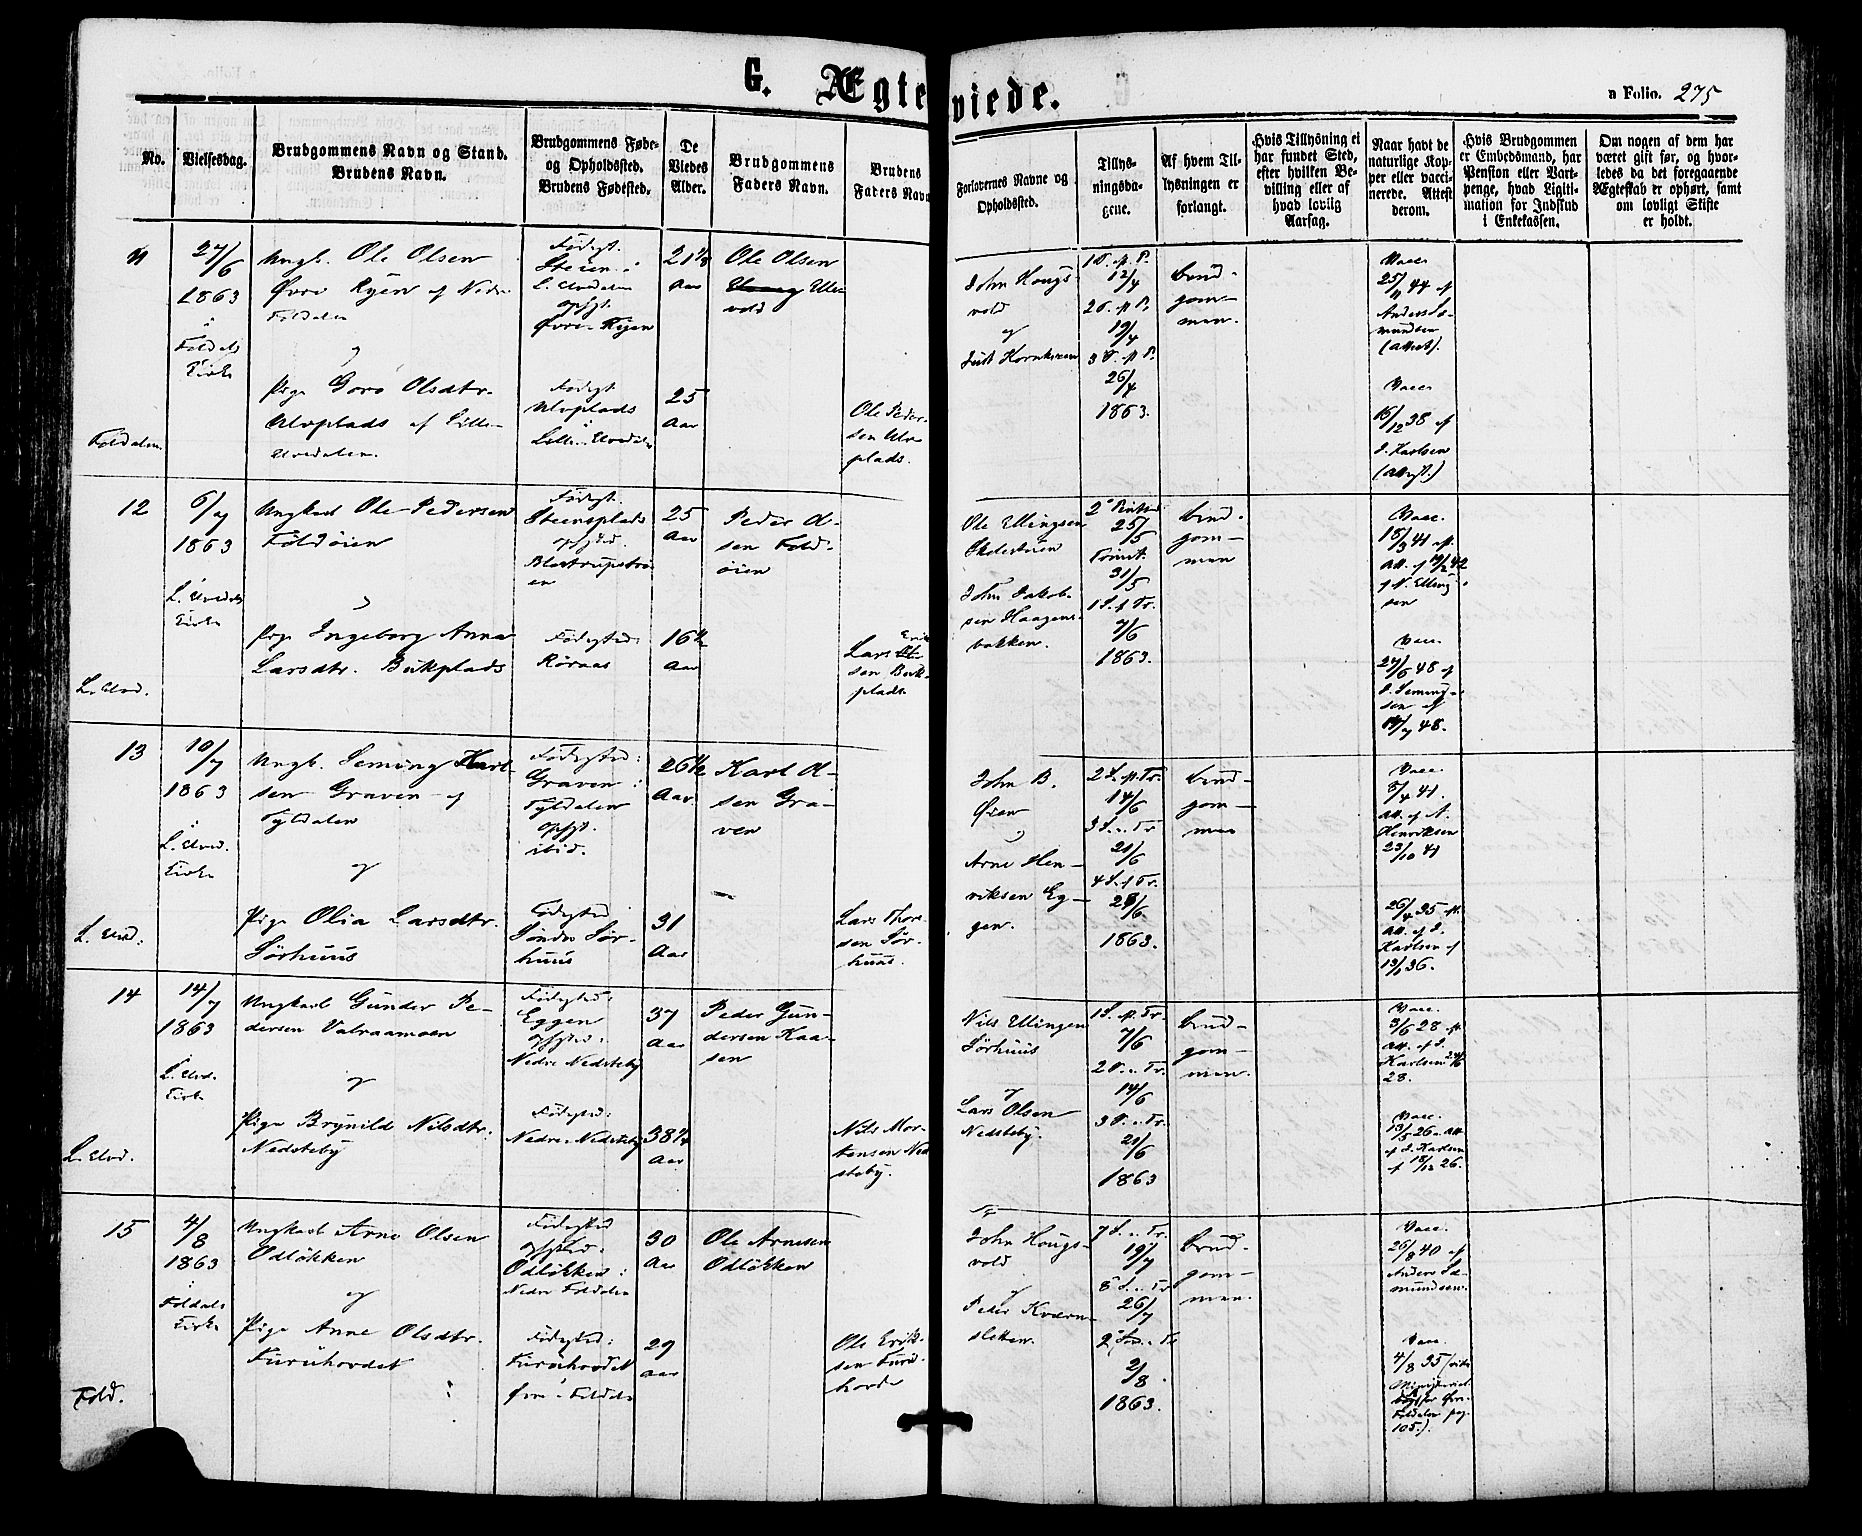 G. Ægteviede.
a Folio. 275
No.
Vielsesdag.
Brudgommens Navn og Stand.
Brudens Navn.
Brudgommens Føde-
og Opholdssted.
Brudens Fødested.
De
Viedes
Alder.
Brudgommens
Faders Navn.
Brudens
Faders Navn
Forlovernes Navne og
Opholdssted.
Tillys-
ningsda-
gene.
Af hvem Til-
lysningen er
forlangt.
Hvis Tillysning ei
har fundet Sted,
efter hvilken Be-
villing eller af
hvad lovlig
Aarsag.
Naar havt de
naturlige Kop-
per eller vacci-
nerede. Attest
derom.
Hvis Brudgommen
er Embedsmand, har
Pension eller Vart-
penge, hvad Ligiti-
mation for Indskud
i Enkekassen.
Om nogen af dem har
været gift før, og hvor-
ledes da det foregaaende
Ægteskab er ophørt, samt
om lovligt Skifte
er holdt.
11
27/6
1863
i
Foldals
Kirke
Foldalen
Ungk. Ole Olsen
Øvre Ryen af Nedre
Foldalen
og
Pige Goro Olsdtr.
Ulvplads af Lille-
Elvedalen.
Fødest.
Steien i
L. Elvedalen
opht.
Øvre Ryen
Fødest
Ulvplads
i
Lille Elvedalen
21 1/3
Aar
25
Aar
Ole Olsen
Elle-
vold
Ole Peder-
sen Ulv-
plads.
John Hougs-
vold
og
12/4
19/4
26/4
1863.
Brud-
gom-
men.
Vacc.
25/11 44 af
Anders As-
mundsen
(Attest).
Vacc.
16/12 38 af
J. Karlsen
(Attest)
12
6/7
1863
L. Elvedals
Kirke
L. Elvd.
Ungkarl Ole Pedersen
Foldøien
og
Pige Ingeborg Anna
Larsdtr. Bukplads
Fødest.
Steensplads
Fødested:
Røraas
25
Aar
16 1/2
Aar
Peder O-
sen Fold-
øien
Lars Erik
sen Buk-
plads
Ole Ellingsen
John Jakob-
sen Haagens-
bakken.
25/5
31/5
7/6
1863.
Brud-
gom-
men
Vacc.
Vacc.
27/6 48 af
J. Semings-
sen af
14/7 48.
13
10/7
1863
L. Elvd.
Kirke
L. Elvd.
Ungk. Seming Karl-
sen Graven af
Tyldalen
og
Pige Olia Larsdtr.
Sørhuus
Fødested:
Graven i
Tyldalen
opht.
ibid.
Fødested
Søndre Sør-
huus
26 1/2
Aar
31
Aar
Karl O-
sen Gra-
ven
Lars Thor-
sen Sør-
huus.
John B.
Øien
og
Arne Hen-
riksen Eg-
gen.
14/6
21/6
28/6
1863.
Brud-
gom-
men
Vacc.
8/4 41.
Att. af A.
Henriksen
23/10 41
26/4 35
Att. af J.
Karlsen af
14
14/7
1863
L. Elvd.
Kirke
L. Elvd.
Ungkarl Gunder Pe-
dersen Valraamoen
og
Pige Brynild Nilsdtr.
Nedsteby
Fødested:
Eggen
Nedre Nedsteby
Fødested:
Nedre Nedsteby
37
Aar
38 1/4
Aar
Peder Gun-
dersen Kaa-
sen
Nils Mor-
tensen Ned-
steby.
Nils Ellingsen
Sørhuus
og
Lars Olsen
Nedsteby.
7/6
14/6
21/6
1863
Brud-
gom-
men.
Vacc.
3/6 28
Att. af J.
Karlsen
28.
Vacc.
13/5 26 Att.
af J. Karlsen
af 18/12 26.
15
4/8
1863
i
Foldals
Kirke
Fold.
Ungkarl Arne Olsen
Odløkken
og
Pige Anne Olsdtr.
Furuhovdet
Fødested
Odløkken i
Nedre Foldalen
Fødested:
Furuhovdet
Øvre Foldalen
30
Aar
29
Aar
Ole Arnesen
Odløkken
Ole Erik-
sen Furu-
hovde
John Hougs-
vold
og
Peder Kværn-
sletten.
19/7
26/7
2/8
1863.
Brud-
gom-
men.
Vacc.
26/8 40 af
Anders As-
mundsen.
Vacc.
4/8 35
Foldalen pag.
105.).